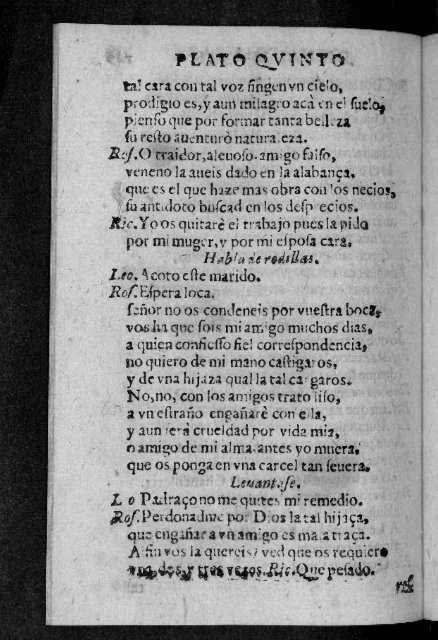 PLATO QVINTO
tal cara con tal voz fingen vn cielo,
prodigio es, y aun milagro acà en el suelo,
pienso que por formar tanta belleza
su resto auenturò naturaleza.
Ros. O traidor, aleuoso amigo falso,
veneno la aueis dado en la alabança,
que es el que haze mas obra con los necios,
su antidoto buscad en los desprecios.
Ric. Yo os quitarè el trabajo pues la pido
por mi muger, y por mi esposa cara.
Habla de rodillas.
Leo. Acoto este marido.
Ros. Espera loca,
señor no os condeneis por vuestra boca,
vos ha que sois mi amigo muchos dias,
a quien confiesso fiel correspondencia,
no quiero de mi mano castigaros,
y de vna hijaza qual la tal cargaros.
No, no, con los amigos trato liso,
a vn estraño engañarè con ella,
y aun serà crueldad por vida mia,
o amigo de mi alma antes yo muera,
que os ponga en vna carcel tan seuera.
Leuantase.
L o Padraço no me quites mi remedio.
Ros. Perdonadme por Dios la tal hijaça,
que engañar a vn amigo es mala traça.
A fin vos la quereis? ved que os requiero
vna, dos, y tres vezes. Ric. Que pesado.